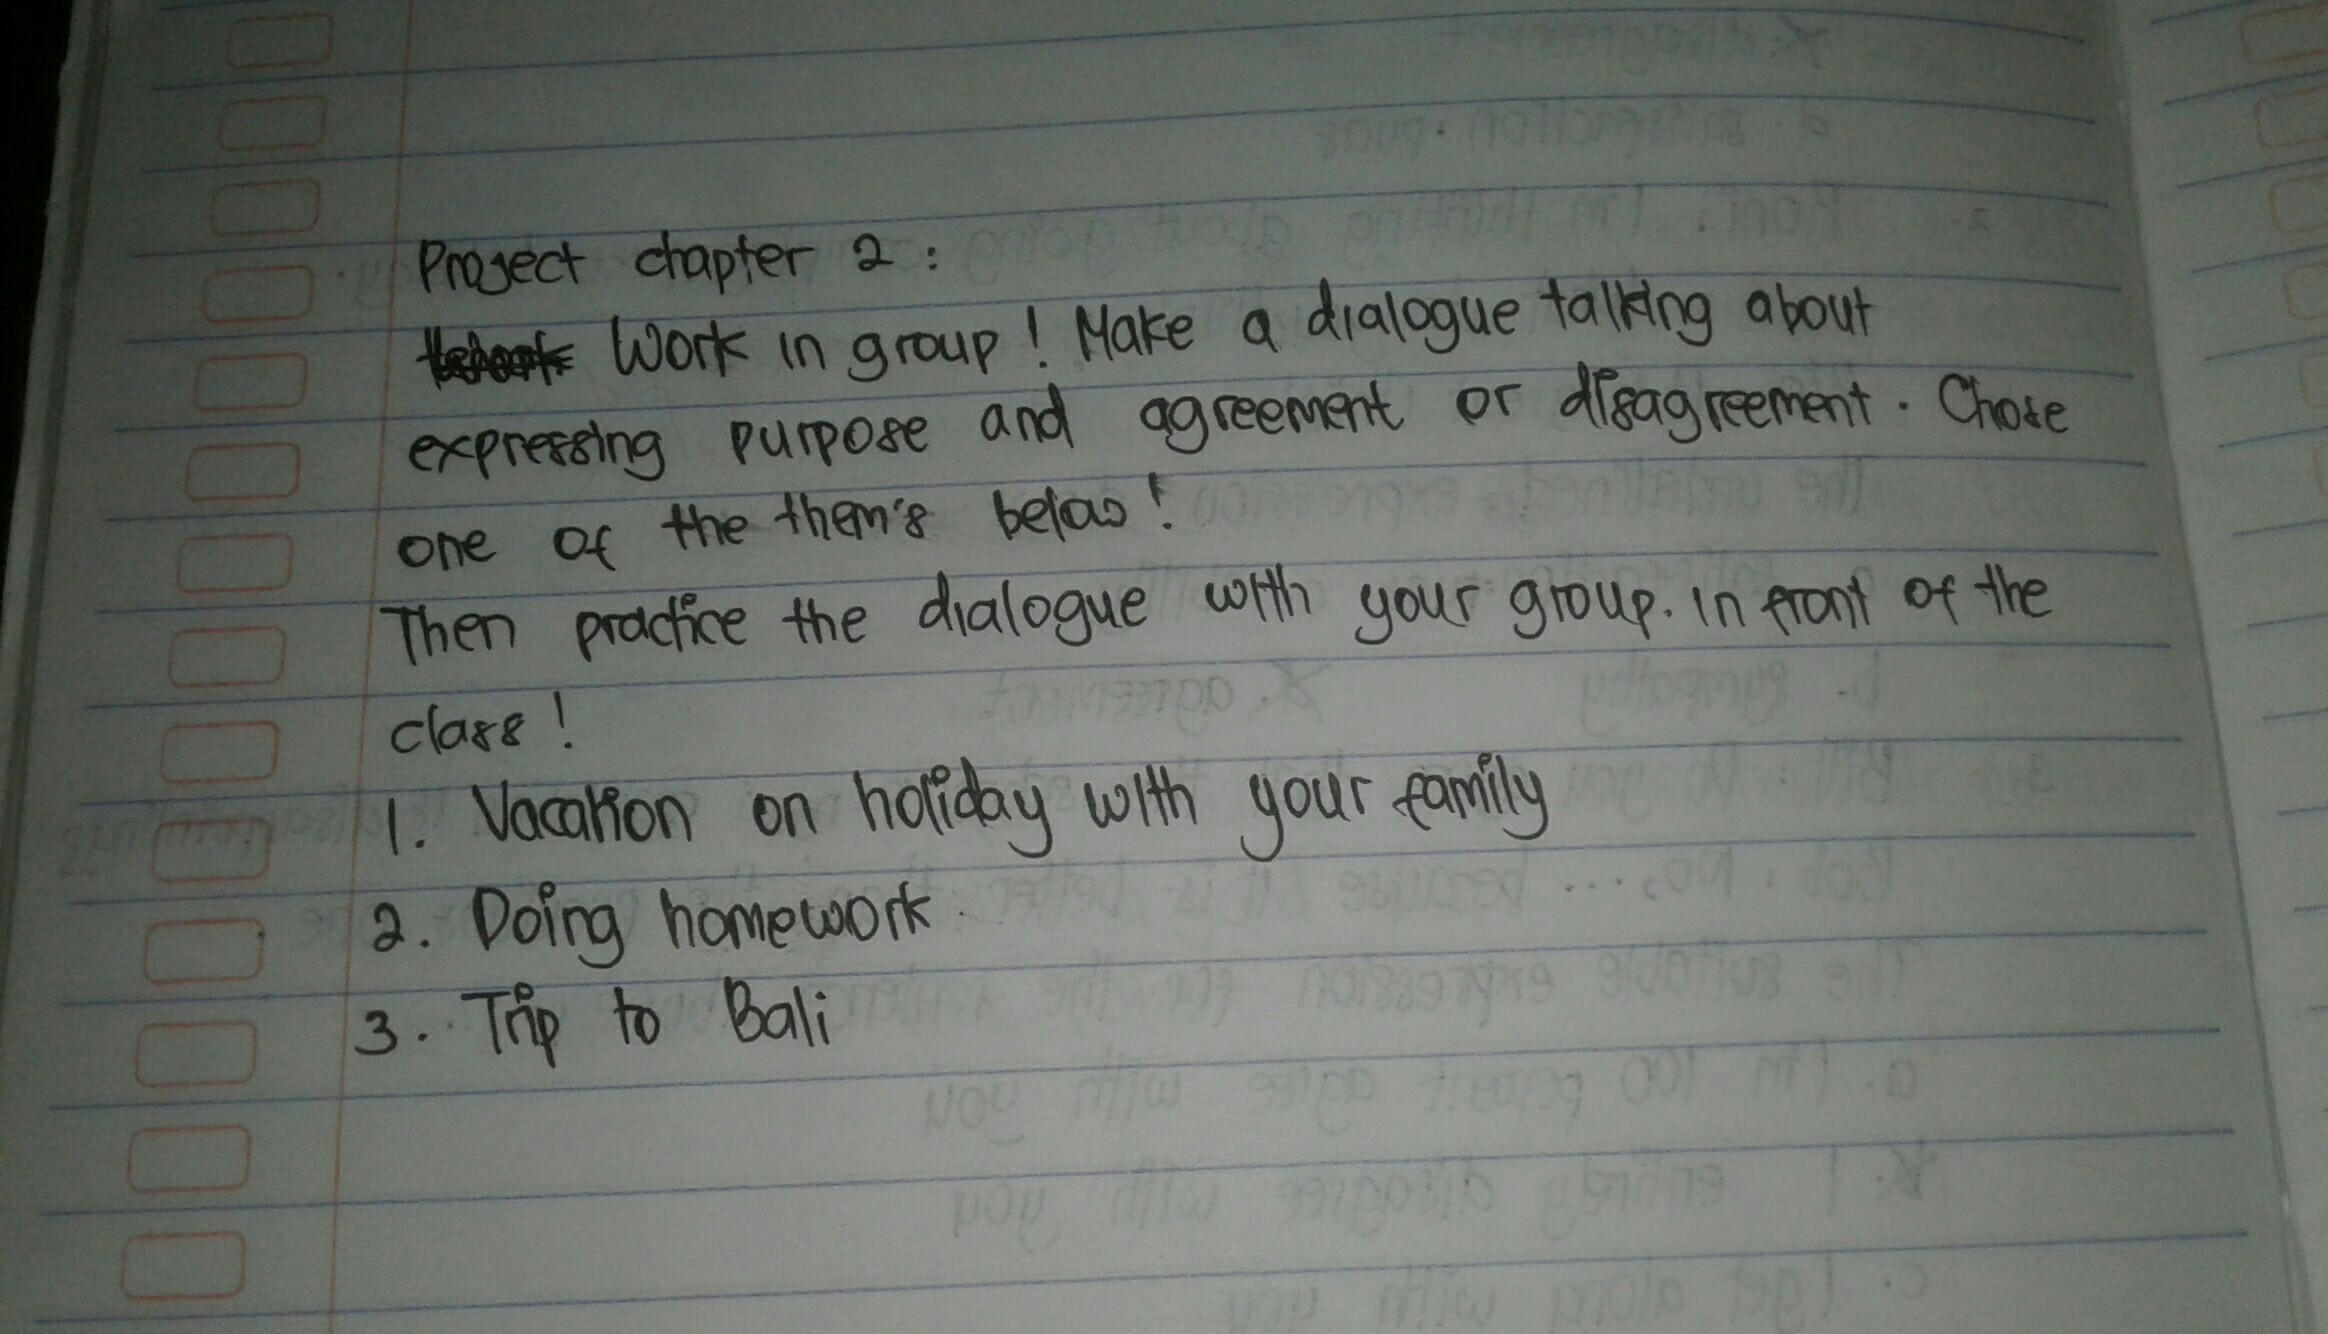 Project chapter 2 :
Work in group ! Make a dialogue talking about
expressing purpose and agreement or disagreement. Chose
one of the them's below !
Then practice the dialogue with your group. in front of the
class !
1. Vacation on holiday with your family
2. Doing homework
3. Trip to Bali